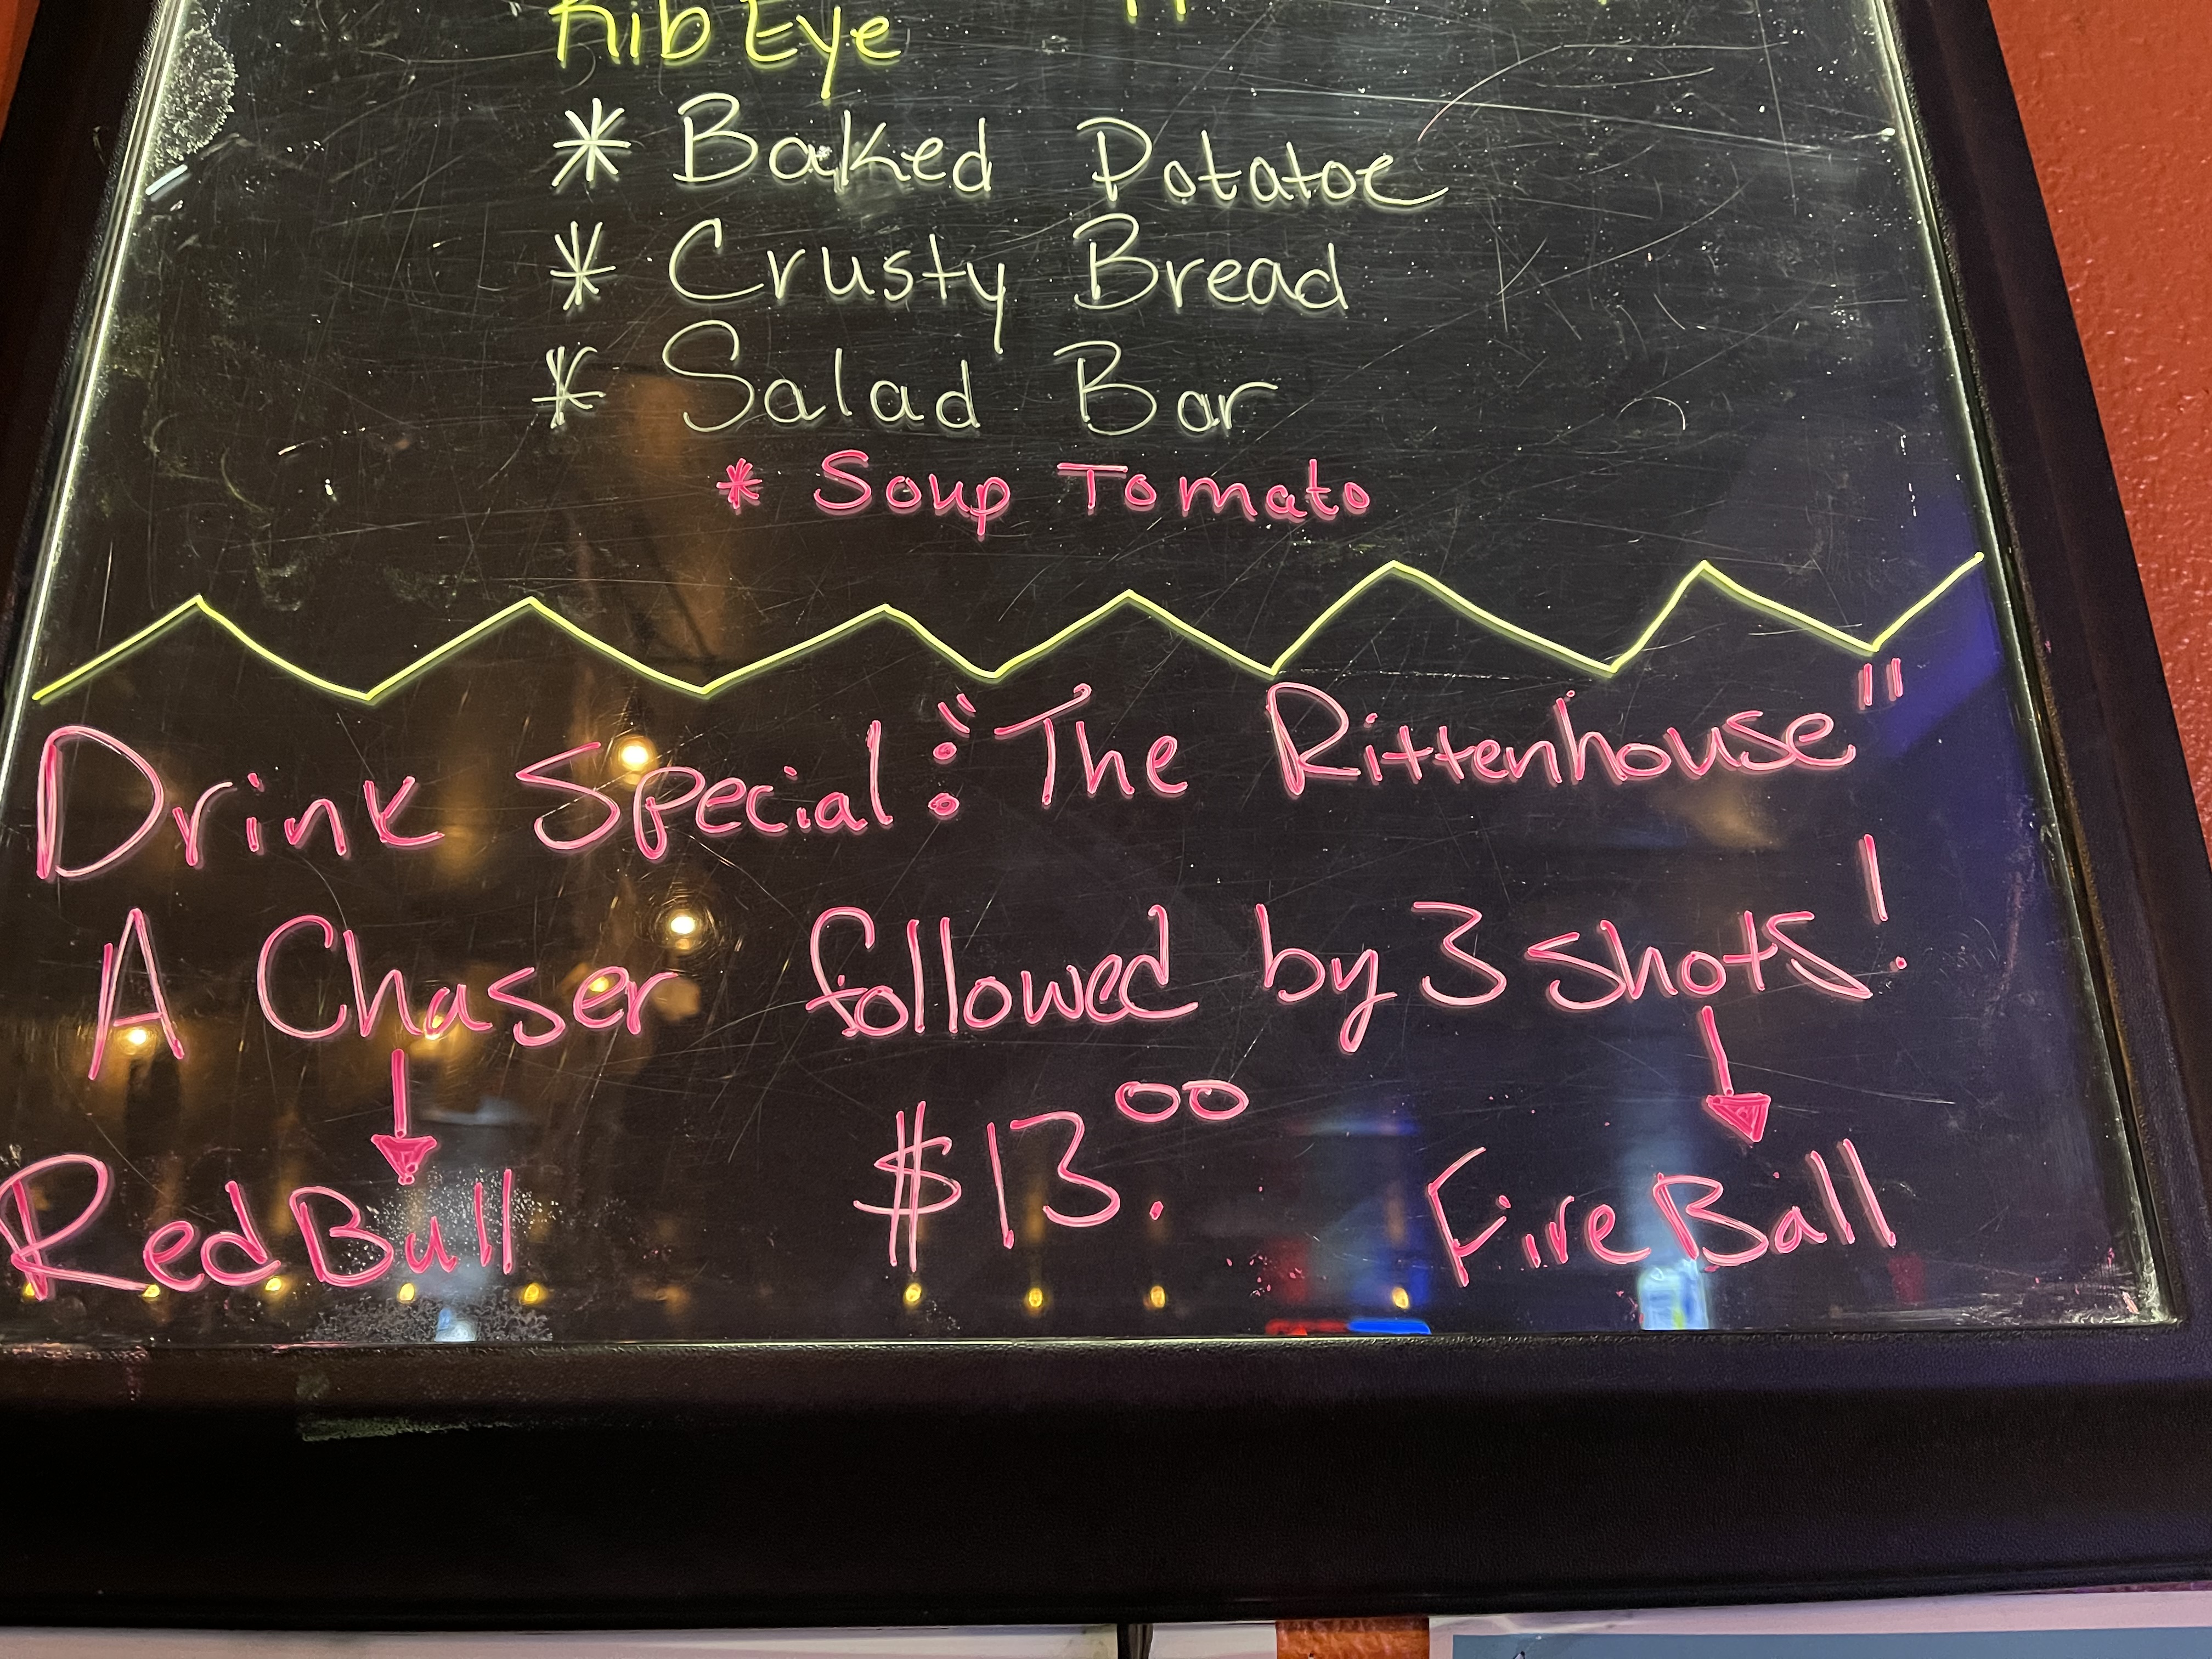 Rib Eye
* Baked Potatoe
* Crusty Bread
* Salad Bar
* Soup Tomato
Drink Special: "The Rittenhouse"
A Chaser followed by 3 shots!
$13.00
Red Bull
FireBall